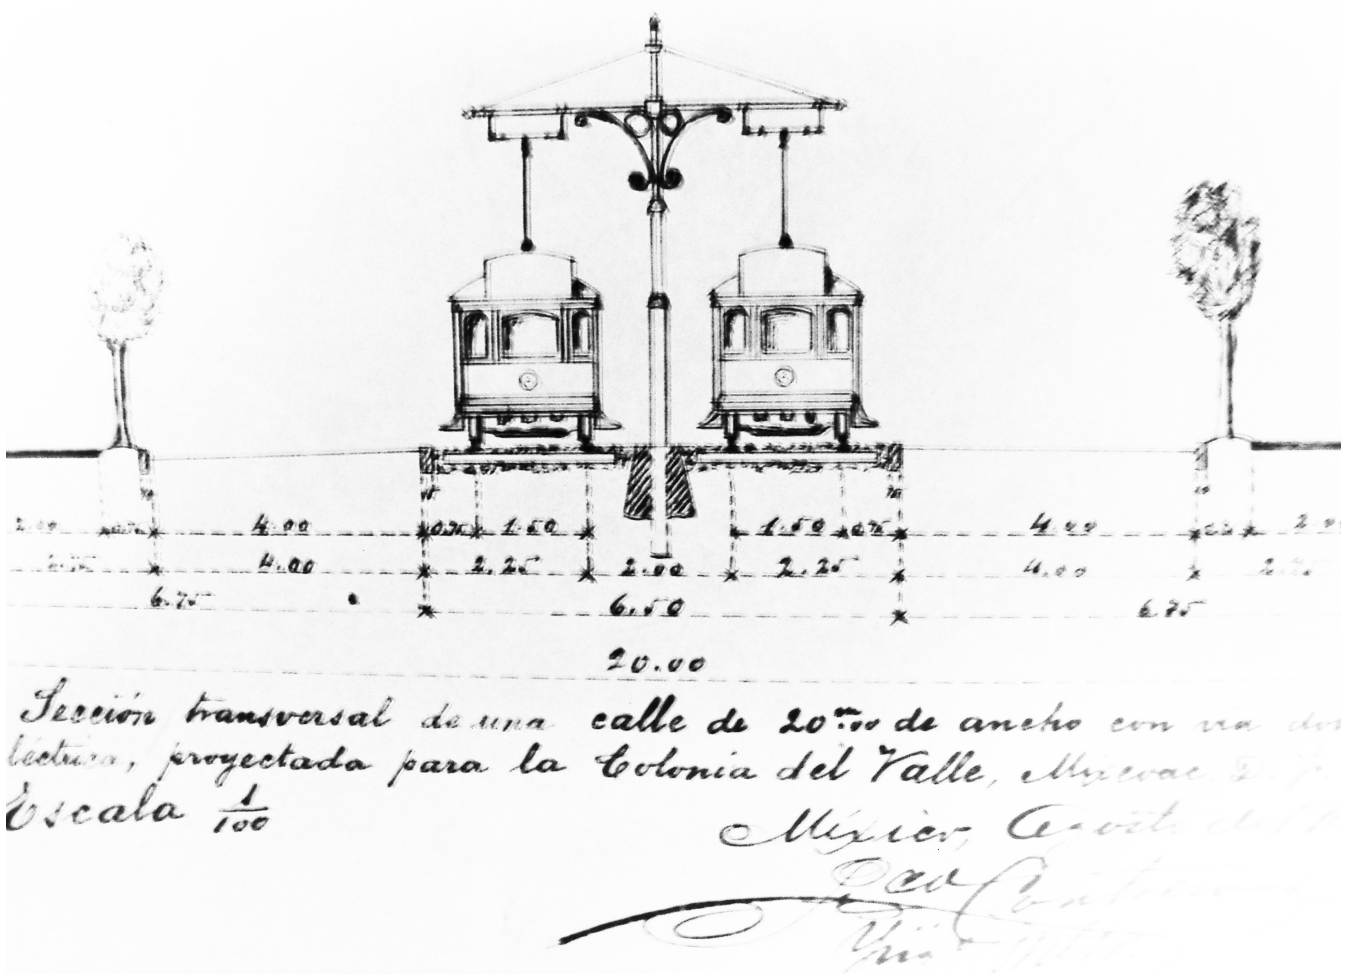 2.00 0.75 4.00 0.75 1.50 1.50 0.75 4.00 2.00
2.75 4.00 2.25 2.00 2.25 4.00 2.75
6.75 6.50 6.75
20.00
Sección transversal de una calle de 20m.00 de ancho con via
léctrica, proyectada para la Colonia del Valle, Mixcoac, D.
Escala 1/100
México, Agosto